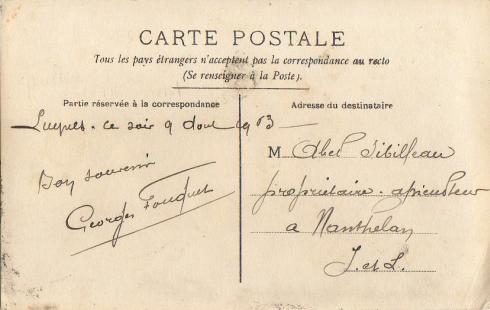 CARTE POSTALE
Tous les pays étrangers n'acceptent pas la correspondance au recto
(Se renseigner à la Poste).
Partie réservée à la correspondance
Luynes. ce soir 9 Aout 1903
Bon souvenir
Georges Fouquet
Adresse du destinataire
M Abel Sibilleau
propriétaire. apiculteur
a Nanthelan
I. et L.